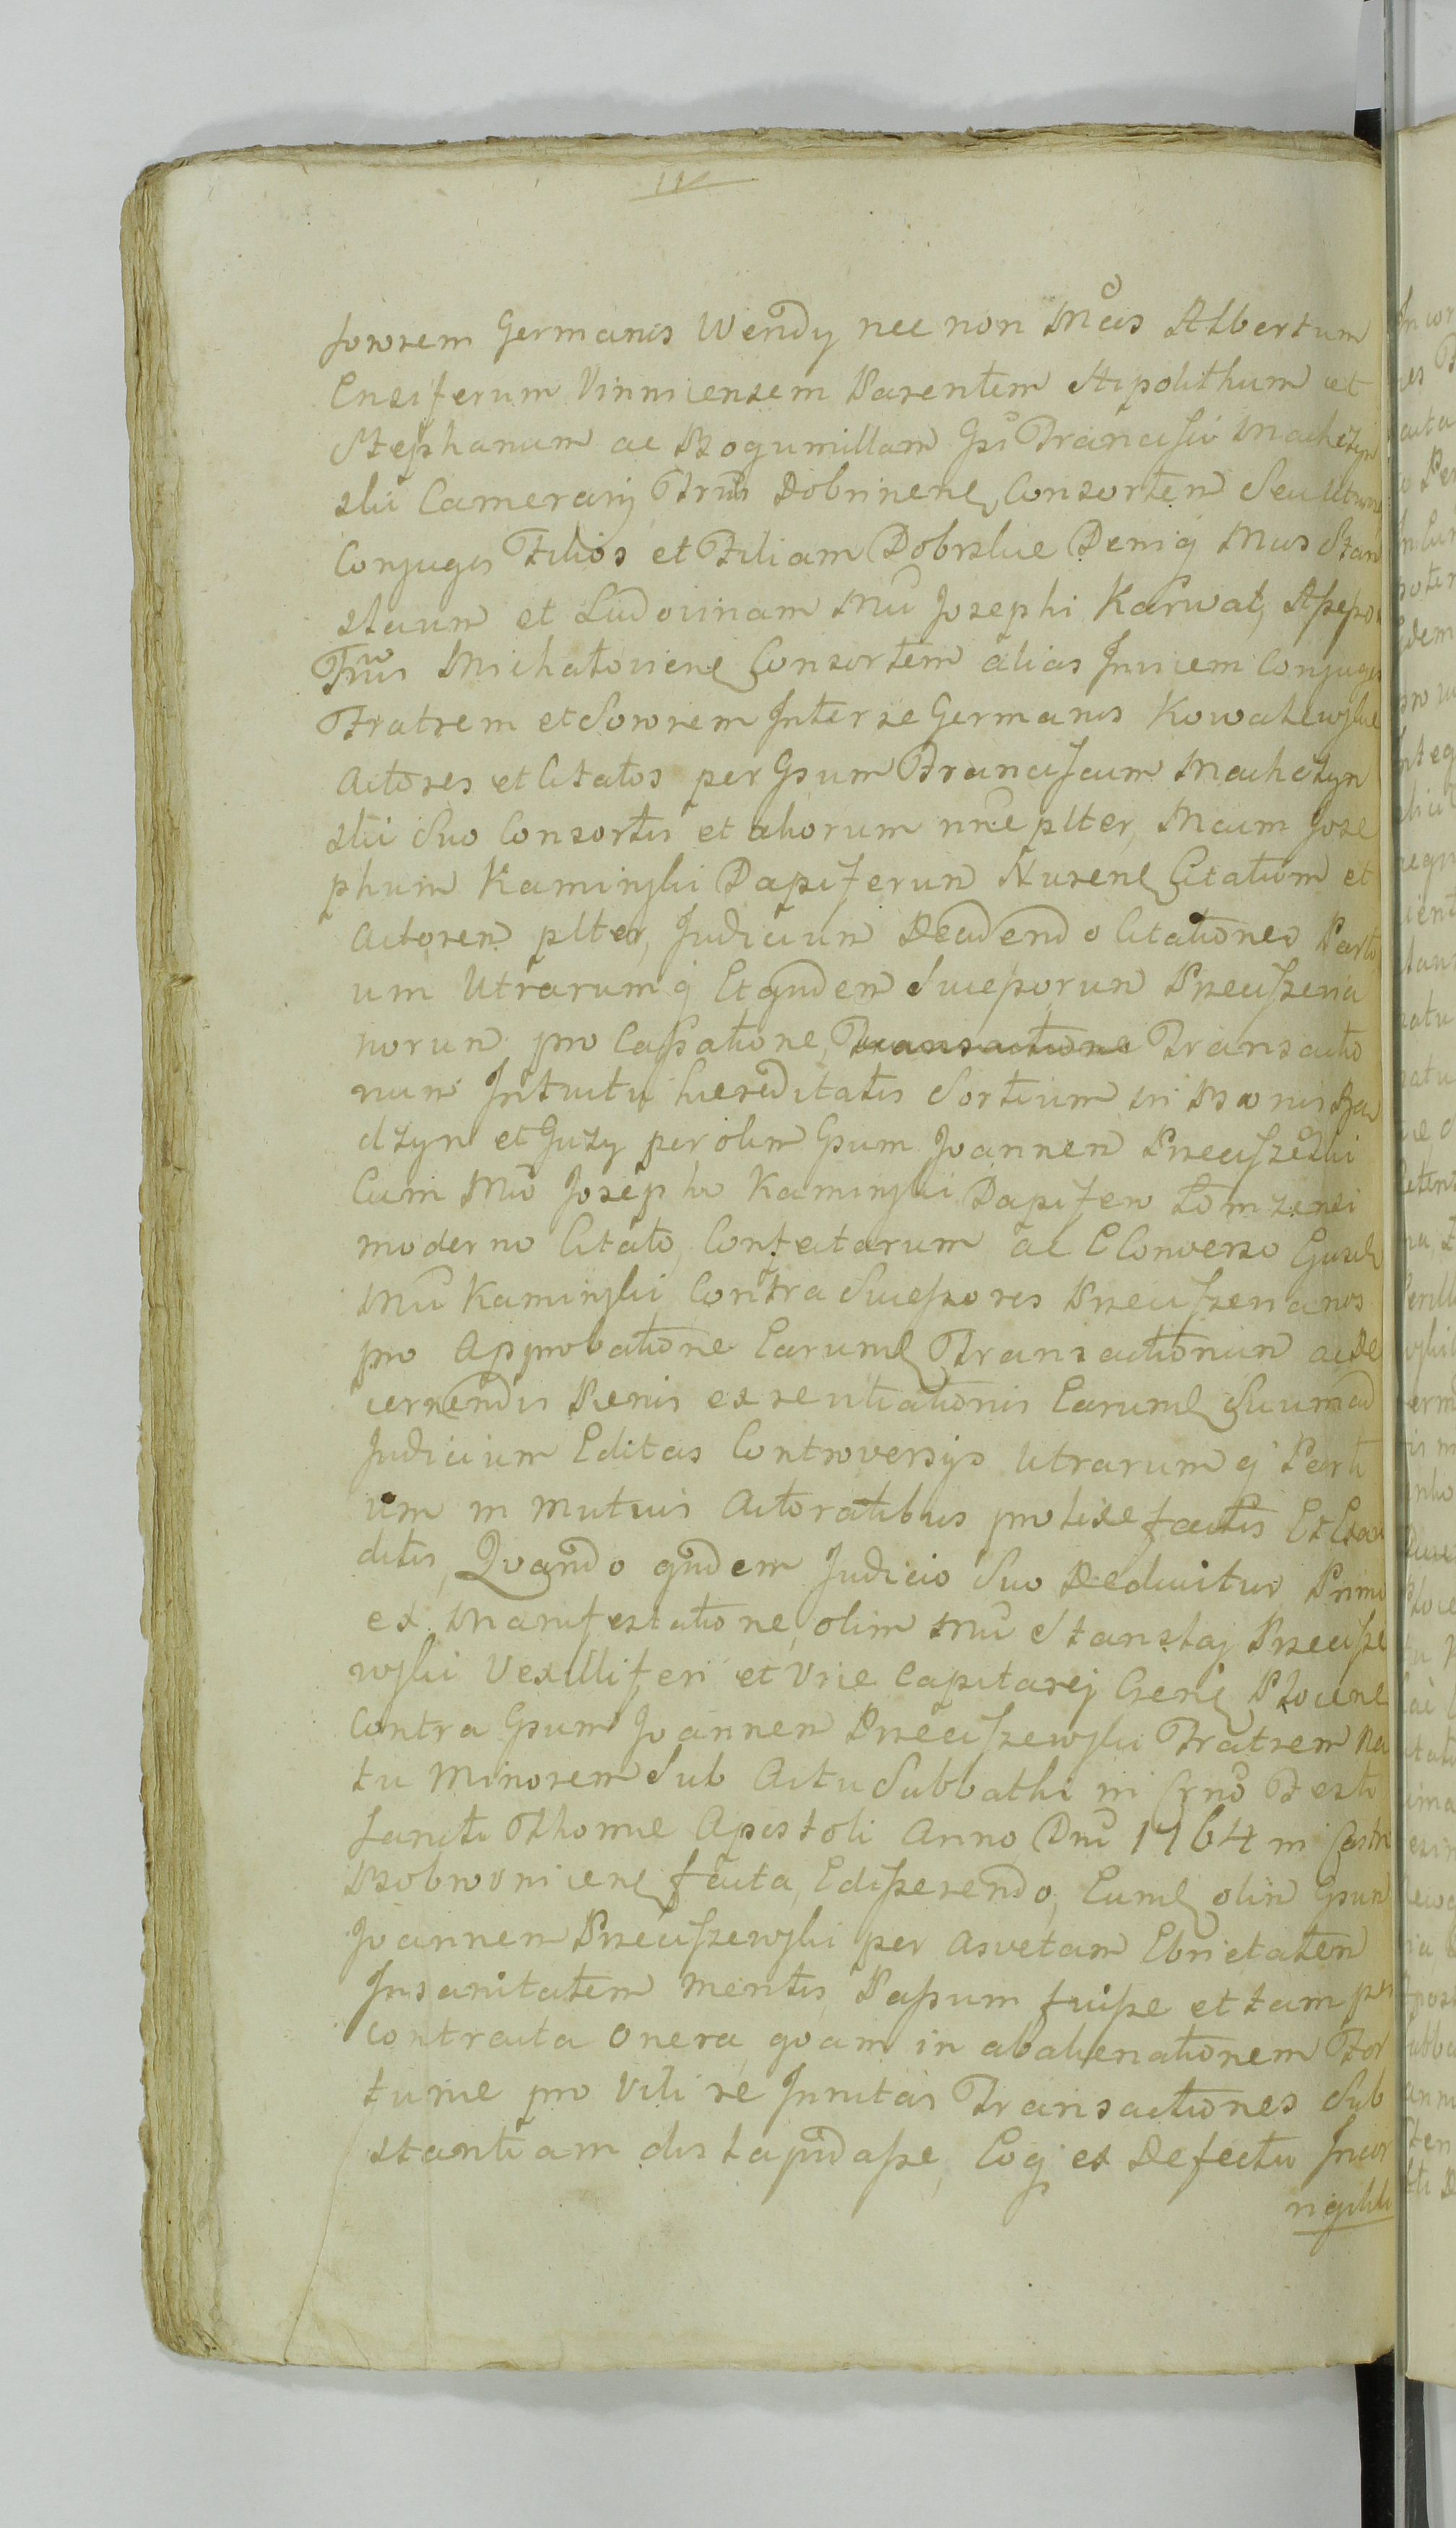 Sororem Germanos Wendy nec non Mcos Albertum
Ensiferum Vinnicensem Parentem Hipolithum et
Stephanum ac Bogumillam Gsi Francisci Machczyn
ski Camerarij Trrus Dobrinens Consortem Seu
Conjuges Filios et Filiam Dobrskie Deniq Mcos Stan
slaum et Ludovinam Mci Josephi Karwat, Assesso
Trrus Michałoviens Consortem alias Invicem Conjuges
Fratrem et Sororem Inter se Germanos Kowalewskie
Actores et Citatos per Gsum Franciscum Machczyn
ski Suo Consortis et aliorum nne plter, Mcum Jose
phum Kaminski Dapiferum Nurens Citatum et
Actorem plter, Judicium Decidendo Citationes Parti
um Utrarumq Et quidem Succesorum Przeciszevia
norum pro Cassatione, Transactione Transactio
num Intuitu hæreditatis Sortium in Bonis
dzyn et Guzy per olim Gsum Joannem Przeciszewski
Cum Mco Josepho Kaminski Dapifero Łomzensi
moderno Citato, Confectarum ac E Converso Ejusd
Mci Kaminski Contra Successores Przeciszevianos
pro Approbatione Earumd Transactionum ac De
cernendis Pænis ex Earumd Suum ad
Judicium Editas Controversijs Utrarumq Parti
um in mutuis Actoratibus prolixe factis Et Exau
ditis, Quando quidem Judicio Suo Deducitur Primo
ex Manifestatione, olim Mci Stanslaj Przecisze
wski Vexilliferi et Vice Capitanej Cseris Płocens
Contra Gsum Joannem Przeciszewski Fratrem Na
tu Minorem Sub Actu Sabbathi in Crno Festi
Sancti Thomæ Apostoli Anno Dni 1764 in Castri
Bobrownicens facta, Edisserendo, Eumd olim Gsum
Joannem Przeciszewski per asvetam Ebrietatem
Insanitatem mentis Passum fuisse et tam per
contracta Onera, qvam in abalienationem For
tunæ pro Vili re Innitas Transactiones Sub
stantiam dislapidasse, Eoq ex Defectu Incor
rigibili